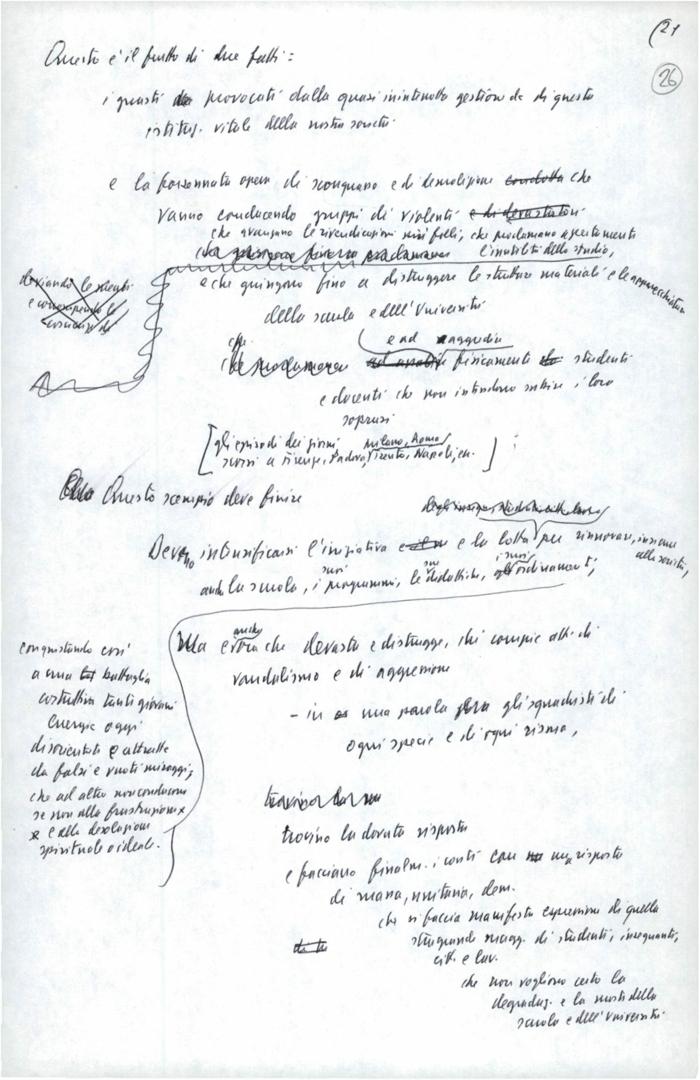 (21
26
Questo è il frutto di due fatti:
i guasti provocati dalla quasi ininterrotta gestione dc di questa
istituz. vitale della nostra società
e la forsennata opera di sconquasso e di demolizione condotta che
vanno conducendo gruppi di violenti e di devastatori
che avanzano le rivendicazioni più folli, che proclamano apertamente
l'inutilità dello studio,
e che giungono fino a distruggere le strutture materiali e le apparecchiature
della scuola e dell'Università
e ad aggredire
fisicamente studenti
e docenti che non intendono subire i loro
soprusi
[gli episodi dei giorni Milano, Roma
scorsi a Firenze, Padova, Trento, Napoli, ecc.]
deviando le menti
e corrompendo le
Questo scempio deve finire
Devono intensificarsi l'iniziativa e la lotta per rinnovare, insieme
alla società,
anche la scuola, i suoi programmi, le sue didattiche, i suoi ordinamenti,
conquistando così
a una battaglia
costruttiva tanti giovani
energie oggi
disorientate e attratte
da falsi e vuoti miraggi,
che ad altro non conducono
se non alla frustrazione
e alla desolazione
spirituale e ideale.
Ma anche che devasta e distrugge, chi compie atti di
vandalismo e di aggressione
– in una parola gli squadristi di
ogni specie e di ogni risma,
trovino la dovuta risposta
e facciano finalm. i conti con una risposta
di massa, unitaria, dem.
che si faccia manifesta espressione di quella
stragrande magg. di studenti, insegnanti,
citt. e lav.
che non vogliono certo la
degradaz. e la morte della
scuola e dell'Università